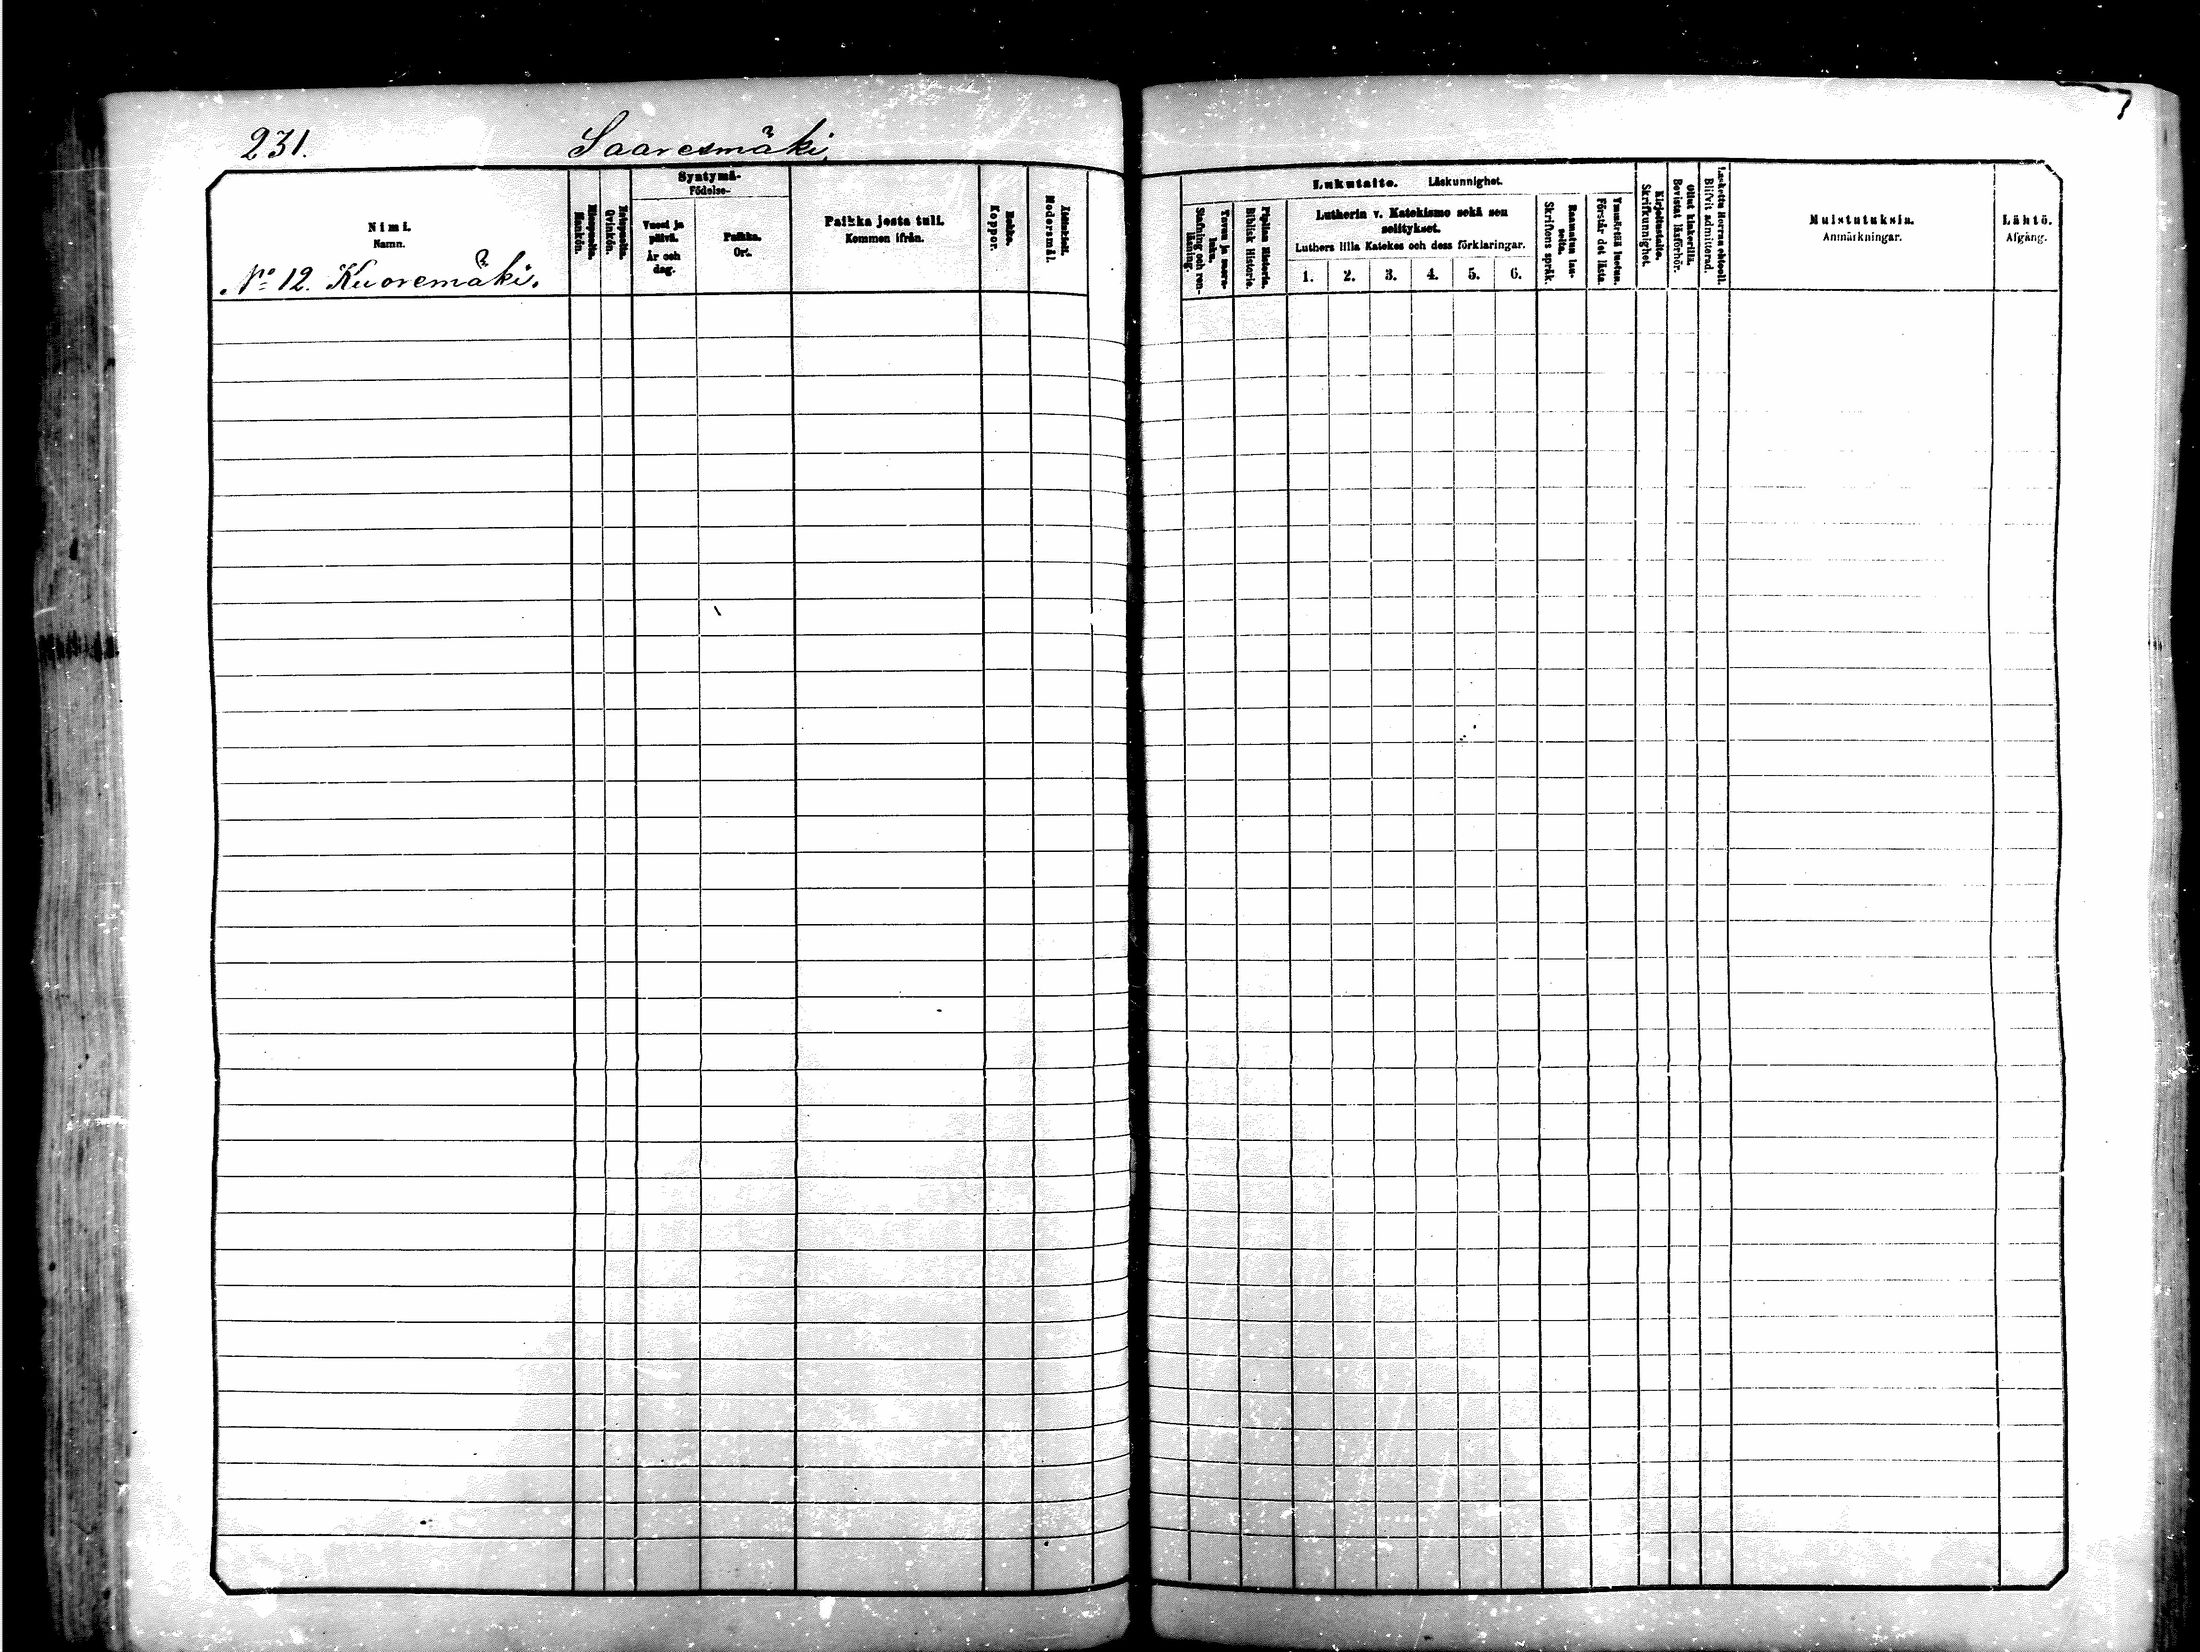 231. Saaresmäki.
Nimi.
Namn.
No 12. Kuoremäki.
Miespuolia.
Mankön.
Vaimopuolia.
Qvinkön.
Syntymä-
Födelse-
Vuosi ja
päivä.
År och
dag.
Paikka.
Ort.
Paikka josta tuli.
Kommen ifrån.
Rokko.
Koppor.
Äidinkieli.
Modersmål.
Lukutaito. Läskunnighet.
Tavuu ja suora-
luku.
Stafning och ren-
läsning.
Piplian Historia.
Biblisk Historie.
Lutherin v. Katekismo sekä sen
selitykset.
Luthers lilla Katekes och dess förklaringar.
1. 2. 3. 4. 5. 6.
Raamatun lau-
seita.
Skriftens språk.
Ymmärtää luetun.
Förstår det lästa.
Kirjoitustaito.
Skrifkunnighet.
Ollut kinkerillä.
Bevistat läsförhör.
Laskettu Herran ehtooll.
Blifvit admitterad.
Muistutuksia.
Anmärkningar.
Lähtö.
Afgång.